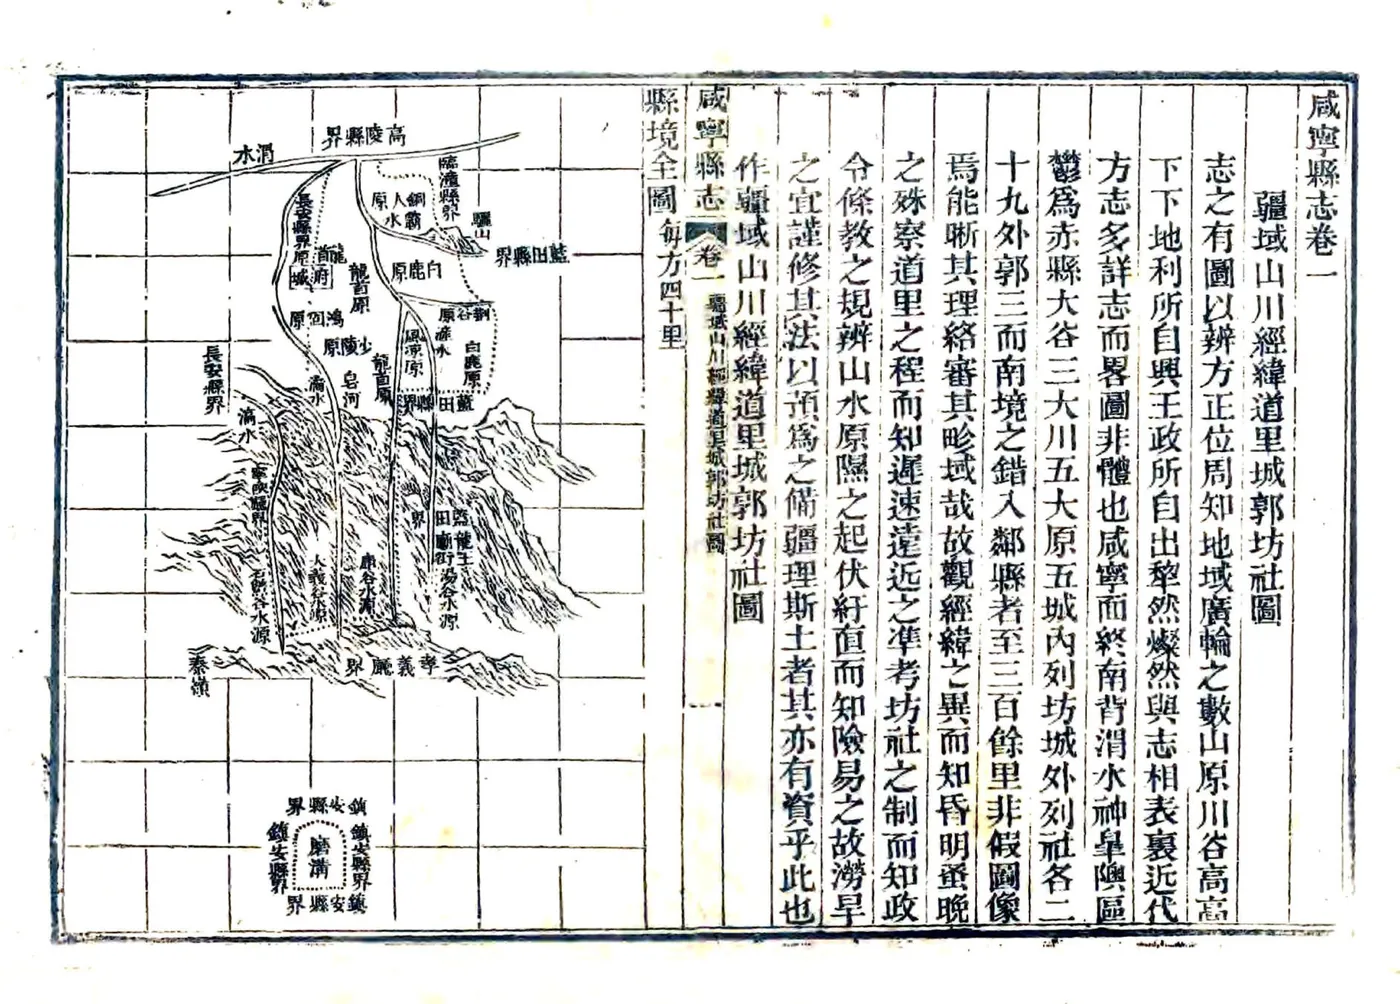 咸寧縣志卷一
疆域山川經緯道里城郭坊社圖
志之有圖以辨方正位周知地域廣輪之數山原川谷高高
下下地利所自興王政所自出犂然燦然與志相表裏近代
方志多詳志而畧圖非體也咸寧而終南背渭水神臯隩區
鬱爲赤縣大谷三大川五大原五城內列坊城外列社各二
十九外郭三而南境之錯入鄰縣者至三百餘里非假圖像
焉能晰其理絡審其畛域哉故觀經緯之異而知昏明蚤晚
之殊察道里之程而知遲速遠近之準考坊社之制而知政
令條教之規辨山水原隰之起伏紆直而知險易之故澇旱
之宜謹修其法以預爲之備疆理斯土者其亦有資乎此也
作疆域山川經緯道里城郭坊社圖
咸寧縣志
卷一
疆域山川經緯道里城郭坊社圖
縣境全圖每方四十里
高陵縣界
渭水
臨潼縣界
驪山
藍田縣界
銅人原
灞水
長安縣界
龍首原
府城
龍首原
白鹿原
荊谷
滻水
白鹿原
鴻固原
少陵原
鳳凉原
龍首原
藍田縣界
皂河
潏水
長安縣界
滈水
寧陝廳界
石鱉谷水源
大義谷水源
庫谷水源
藍田界
龍王廟街
湯谷水源
孝義廳界
秦嶺
鎮安縣界
鎮安縣界
鎮安縣界
磨溝
鎮安縣界